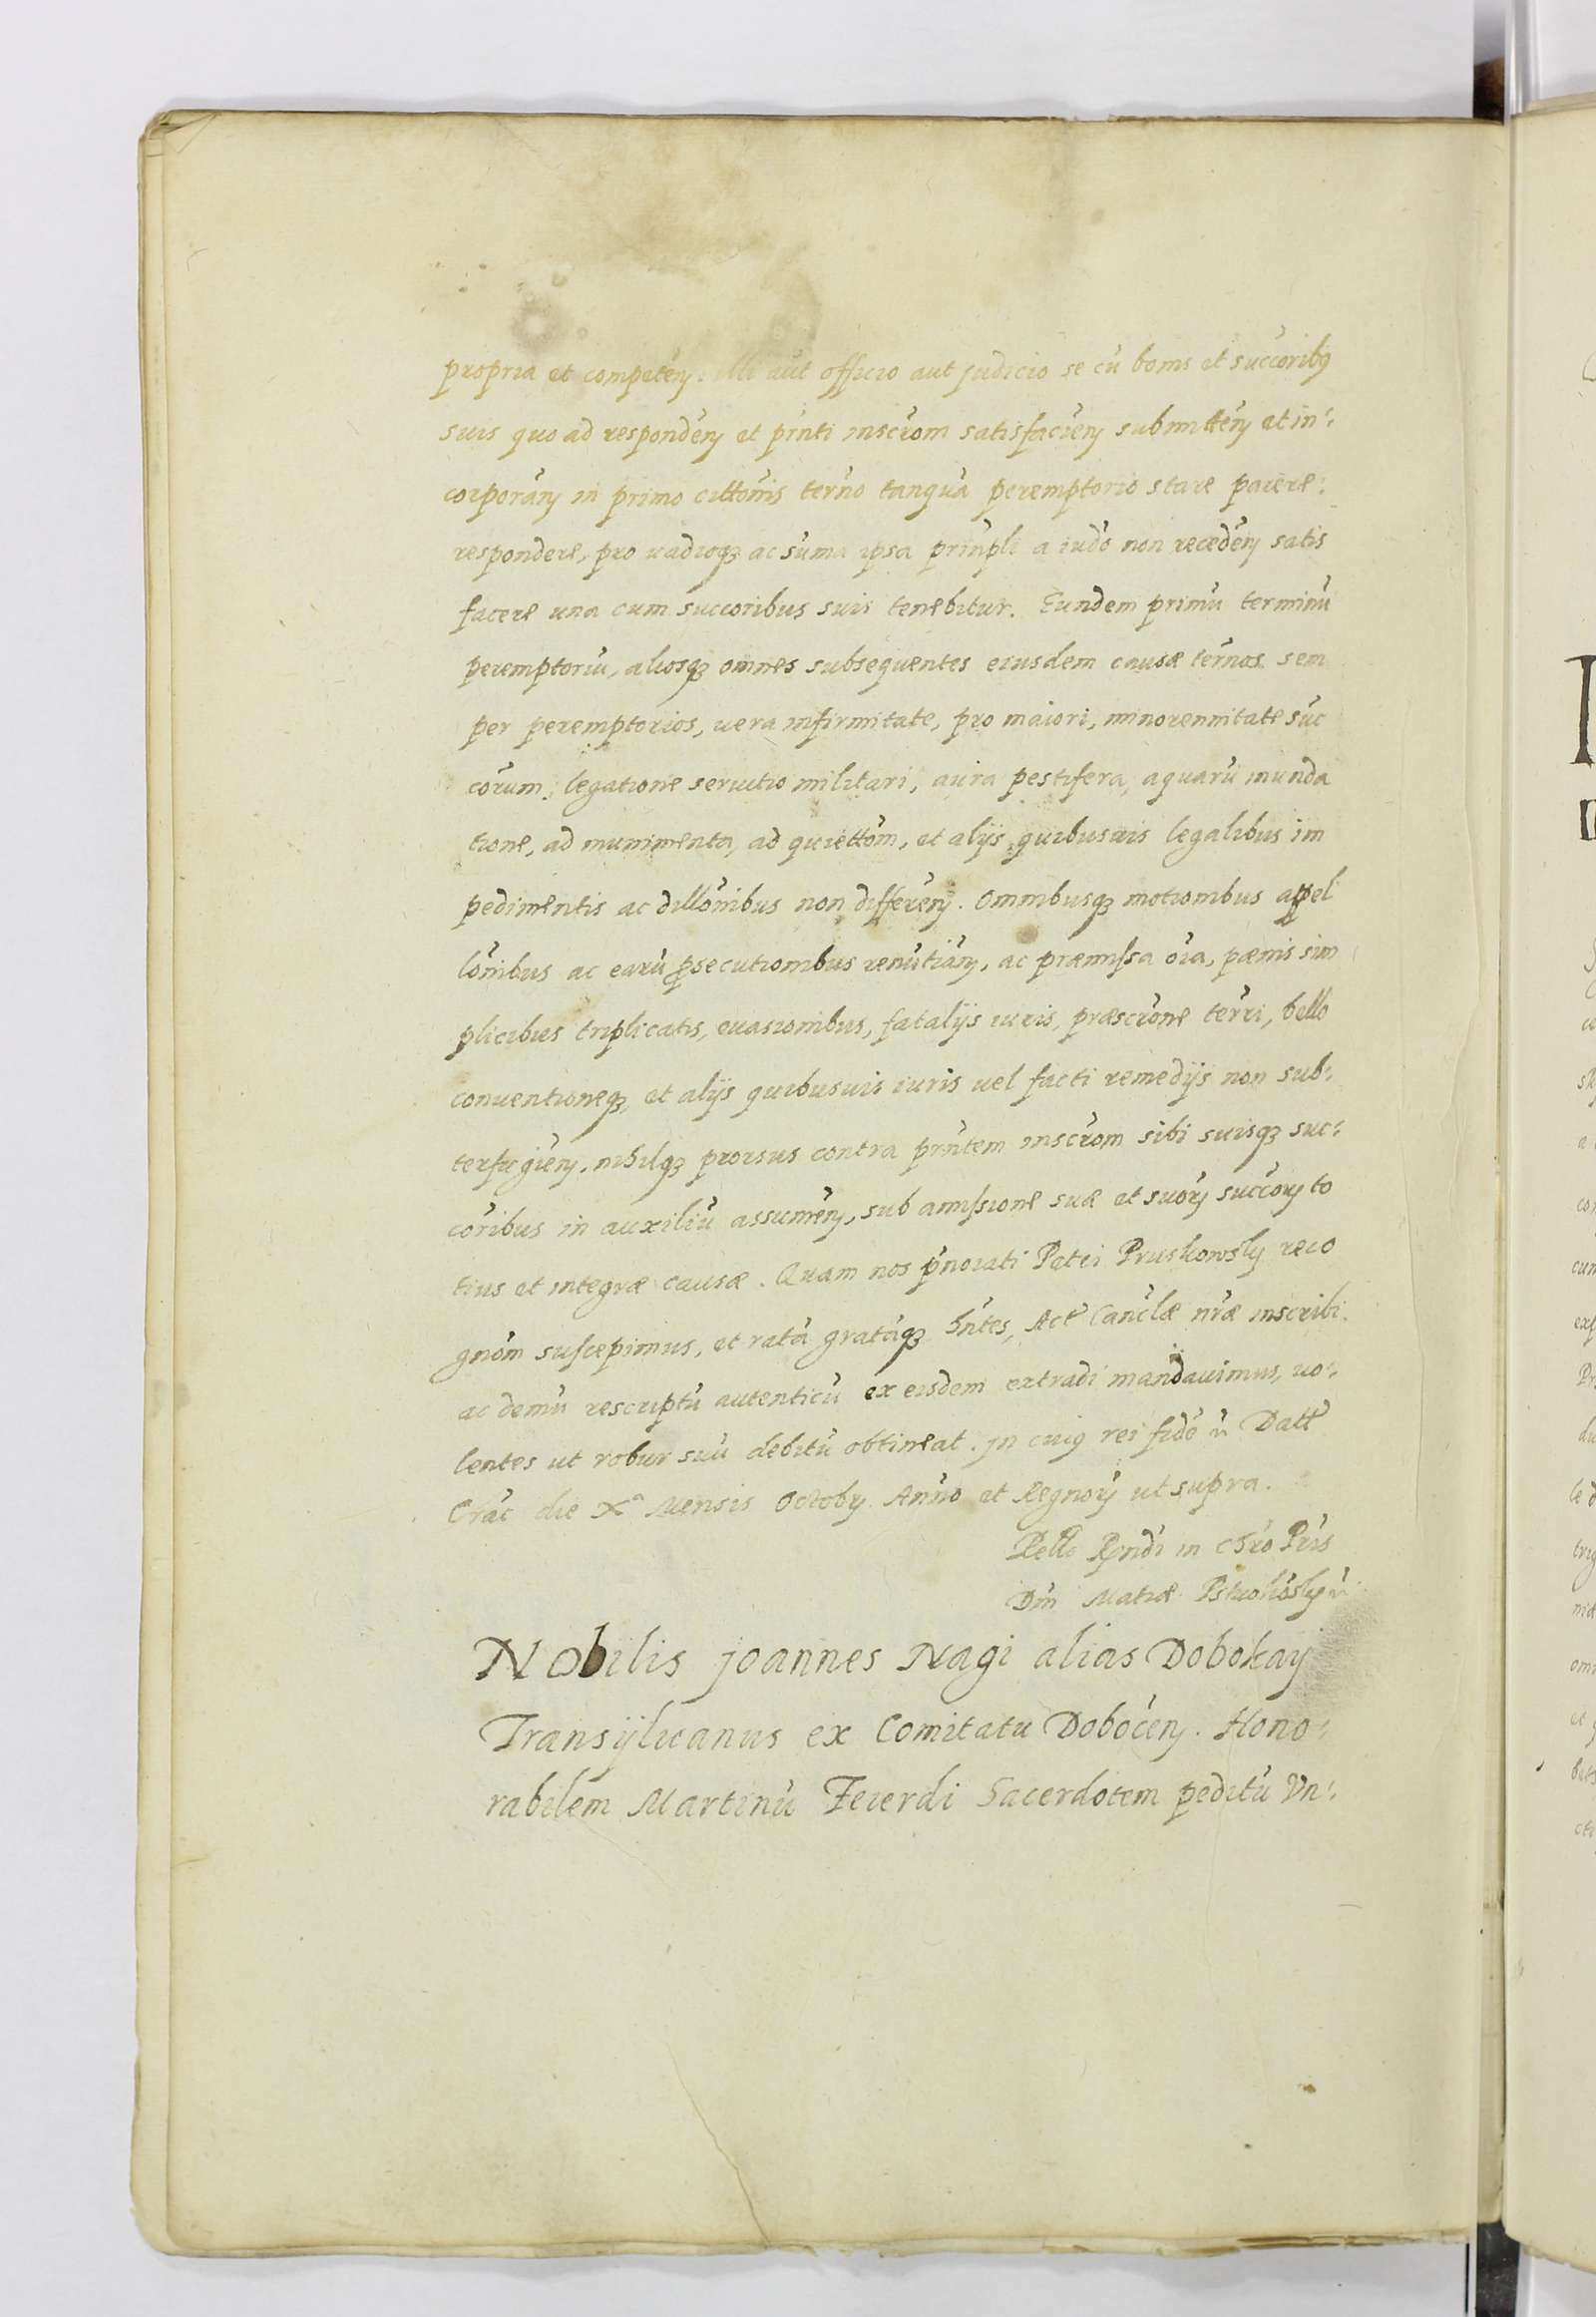 propria et competeń illi aut officio aut judicio se cū bonis et succoribꝫ
suis quo ad respondeń et pŕnti inscŕom satisfacień submitteń et in:
corporań in primo cittońis terńo tanquā peremptorio stare parere:
respondere, pro vadioqꝫ ac suma ipsa prińpli a iudō non recedeń satis
facere una cum succoribus suis tenebitur. Eundem primū terminū
peremptoriū, aliosqꝫ omnes subsequentes eiusdem causæ terńos sem
per peremptorios, uera infirmitate, pro maiori, minorennitate suc
corum, legatione seruitio militari, aura pestifera, aquarū inunda
tione, ad munimenta, ad quiettom, et alijs quibusuis legalibus im
pedimentis ac dillońibus non differeń. Omnibusqꝫ motionibus appel
lońibus ac earū ꝓsecutionibus renūtiań, ac præmissa oīa, pænis sim
plicibus triplicatis, euasionibus, fatalijs iuris, præscŕone terŕi, bello
conuentioneqꝫ, et alijs quibusuis iuris uel facti remedijs non sub:
terfugień, nihilqꝫ prorsus contra prńtem inscŕom sibi suisqꝫ suc:
coribus in auxiliū assumeń, sub amissione suæ et suoꝝ succoꝝ to
tius et integræ causæ. Quam nos pńoiati Petri Pruskowsky reco
gnom suscepimus, et ratā gratāqꝫ hńtes, Act Cancl̄æ nŕæ inscribi
ac demū rescriptū autenticū ex eisdem extradi mandauimus, uo:
lentes ut robur suū debitū obtineat. In cuiꝯ rei fidē ū Datt
Crac die Xª Mensis Octobꝫ Anno et Regnoꝝ ut supra.
Rello Rńdi in Chŕo Pŕis
Dńi Matiæ Pstrokosky ū
Nobilis joannes Nagi alias Dobokay
Transyluanus ex Comitatu Doboceń. Hono:
rabilem Martinū Feierdi Sacerdotem peditū Vn: